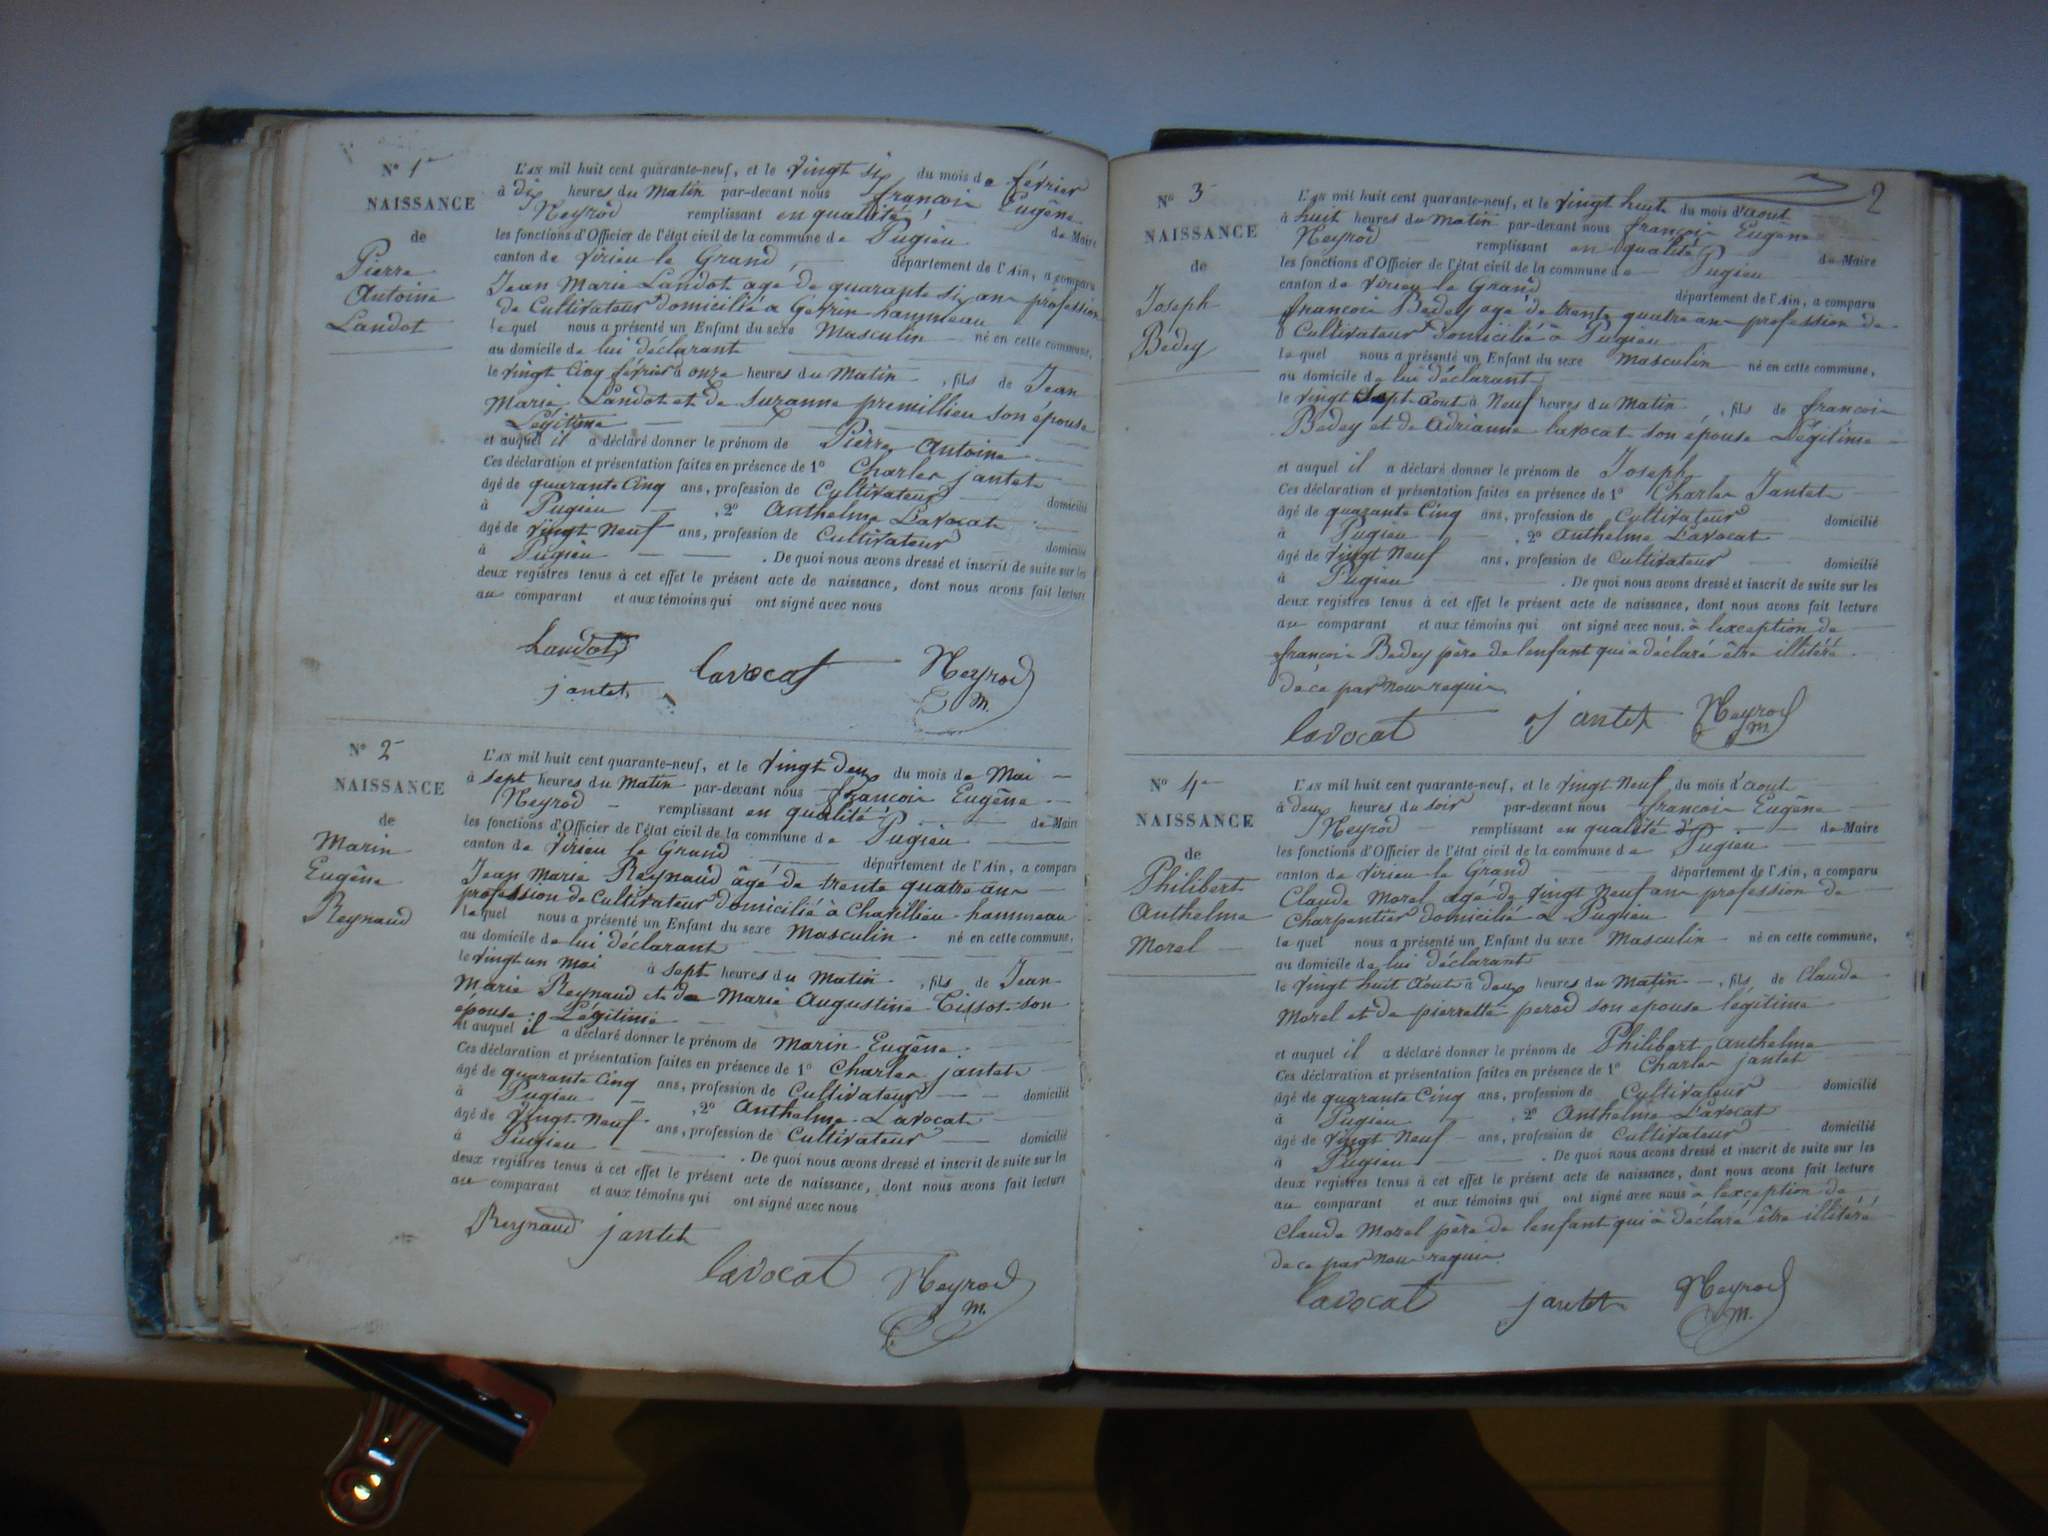 N° 1er
NAISSANCE
de
Pierre
Antoine
Landot
L'AN mil huit cent quarante-neuf, et le vingt six du mois de février
à dix heures du Matin par-devant nous françois Eugêne
Neyrod remplissant en qualité de Maire
les fonctions d'Officier de l'état civil de la commune de Pugieu
canton de Virieu le Grand, département de l'Ain, a comparu
Jean Marie Landot age de quarante six ans profession
de Cultivateur domicilié a hammeau
lequel nous a présenté un Enfant du sexe Masculin né en cette commune,
au domicile de lui déclarant
le vingt Cinq février à onze heures du Matin, fils de Jean
Marie Landot et de Suzanne premillieu son épouse
Légitime
et auquel il a déclaré donner le prénom de Pièrre Antoine
Ces déclaration et présentation faites en présence de 1° Charles jantet
âgé de quarante Cinq ans, profession de Cultivateur domicilié
à Pugieu, 2° Anthelme Lavocat
âgé de vingt Neuf ans, profession de Cultivateur domicilié
à Pugieu. De quoi nous avons dressé et inscrit de suite sur les
deux registres tenus à cet effet le présent acte de naissance, dont nous avons fait lecture
au comparant et aux témoins qui ont signé avec nous
Landot lavocat Neyrod
jantet M.
N° 2
NAISSANCE
de
Marin
Eugêne
Reynaud
L'AN mil huit cent quarante-neuf, et le vingt deux du mois de Mai
à sept heures du Matin par-devant nous françois Eugêne
Neyrod remplissant en qualité de Maire
les fonctions d'Officier de l'état civil de la commune de Pugieu
canton de Virieu le Grand département de l'Ain, a comparu
Jean Marie Reynaud âgé de trente quatre ans
profession de Cultivateur domicilié à Chavillieu hammeau
lequel nous a présenté un Enfant du sexe Masculin né en cette commune,
au domicile de lui déclarant
le vingt un mai à sept heures du Matin, fils de Jean
Marie Reynaud et de Marie Augustine Tissot son
épouse Légitime
et auquel il a déclaré donner le prénom de Marin Eugêne
Ces déclaration et présentation faites en présence de 1° Charles jantet
âgé de quarante Cinq ans, profession de Cultivateur domicilié
à Pugieu, 2° Anthelme Lavocat
âgé de vingt Neuf ans, profession de Cultivateur domicilié
à Pugieu. De quoi nous avons dressé et inscrit de suite sur les
deux registres tenus à cet effet le présent acte de naissance, dont nous avons fait lecture
au comparant et aux témoins qui ont signé avec nous
Reynaud jantet
lavocat Neyrod
M.
2
N° 3
NAISSANCE
de
Joseph
Bedey
L'AN mil huit cent quarante-neuf, et le vingt huit du mois d'aout
à huit heures du matin par-devant nous françois Eugêne
Neyrod remplissant en qualité de Maire
les fonctions d'Officier de l'état civil de la commune de Pugieu
canton de Virieu le Grand département de l'Ain, a comparu
françois Bedey agé de trente quatre ans profession de
Cultivateur domicilié à Pugieu
lequel nous a présenté un Enfant du sexe Masculin né en cette commune,
au domicile de lui déclarant
le vingt Sept Aout à Neuf heures du Matin, fils de françois
Bedey et de Adrianne lavocat son épouse Légitime
et auquel il a déclaré donner le prénom de Joseph
Ces déclaration et présentation faites en présence de 1° Charles Jantet
âgé de quarante Cinq ans, profession de Cultivateur domicilié
à Pugieu, 2° Anthelme Lavocat
âgé de vingt Neuf ans, profession de Cultivateur domicilié
à Pugieu. De quoi nous avons dressé et inscrit de suite sur les
deux registres tenus à cet effet le présent acte de naissance, dont nous avons fait lecture
au comparant et aux témoins qui ont signé avec nous. à lexception de
françois Bedey père de lenfant qui a déclaré être illitéré
de ce par nous requis
lavocat jantet Neyrod
M.
N° 4
NAISSANCE
de
Philibert
Anthelme
Morel
L'AN mil huit cent quarante-neuf, et le vingt Neuf du mois d'aout
à deux heures du soir par-devant nous françois Eugêne
Neyrod remplissant en qualité de Maire
les fonctions d'Officier de l'état civil de la commune de Pugieu
canton de Virieu le Grand département de l'Ain, a comparu
Claude Morel agé de vingt Neuf ans profession de
Charpentier domicilié a Pugieu
lequel nous a présenté un Enfant du sexe Masculin né en cette commune,
au domicile de lui déclarant
le vingt huit Aout à deux heures du Matin, fils de Claude
Morel et de pierrette perod son épouse légitime
et auquel il a déclaré donner le prénom de Philibert Anthelme
Ces déclaration et présentation faites en présence de 1° Charles jantet
âgé de quarante Cinq ans, profession de Cultivateur domicilié
à Pugieu, 2° Anthelme Lavocat
âgé de vingt Neuf ans, profession de Cultivateur domicilié
à Pugieu. De quoi nous avons dressé et inscrit de suite sur les
deux registres tenus à cet effet le présent acte de naissance, dont nous avons fait lecture
au comparant et aux témoins qui ont signé avec nous à lexception de
Claude Morel père de lenfant qui à déclaré être illitéré
de ce par nous requis
lavocat jantet Neyrod
M.